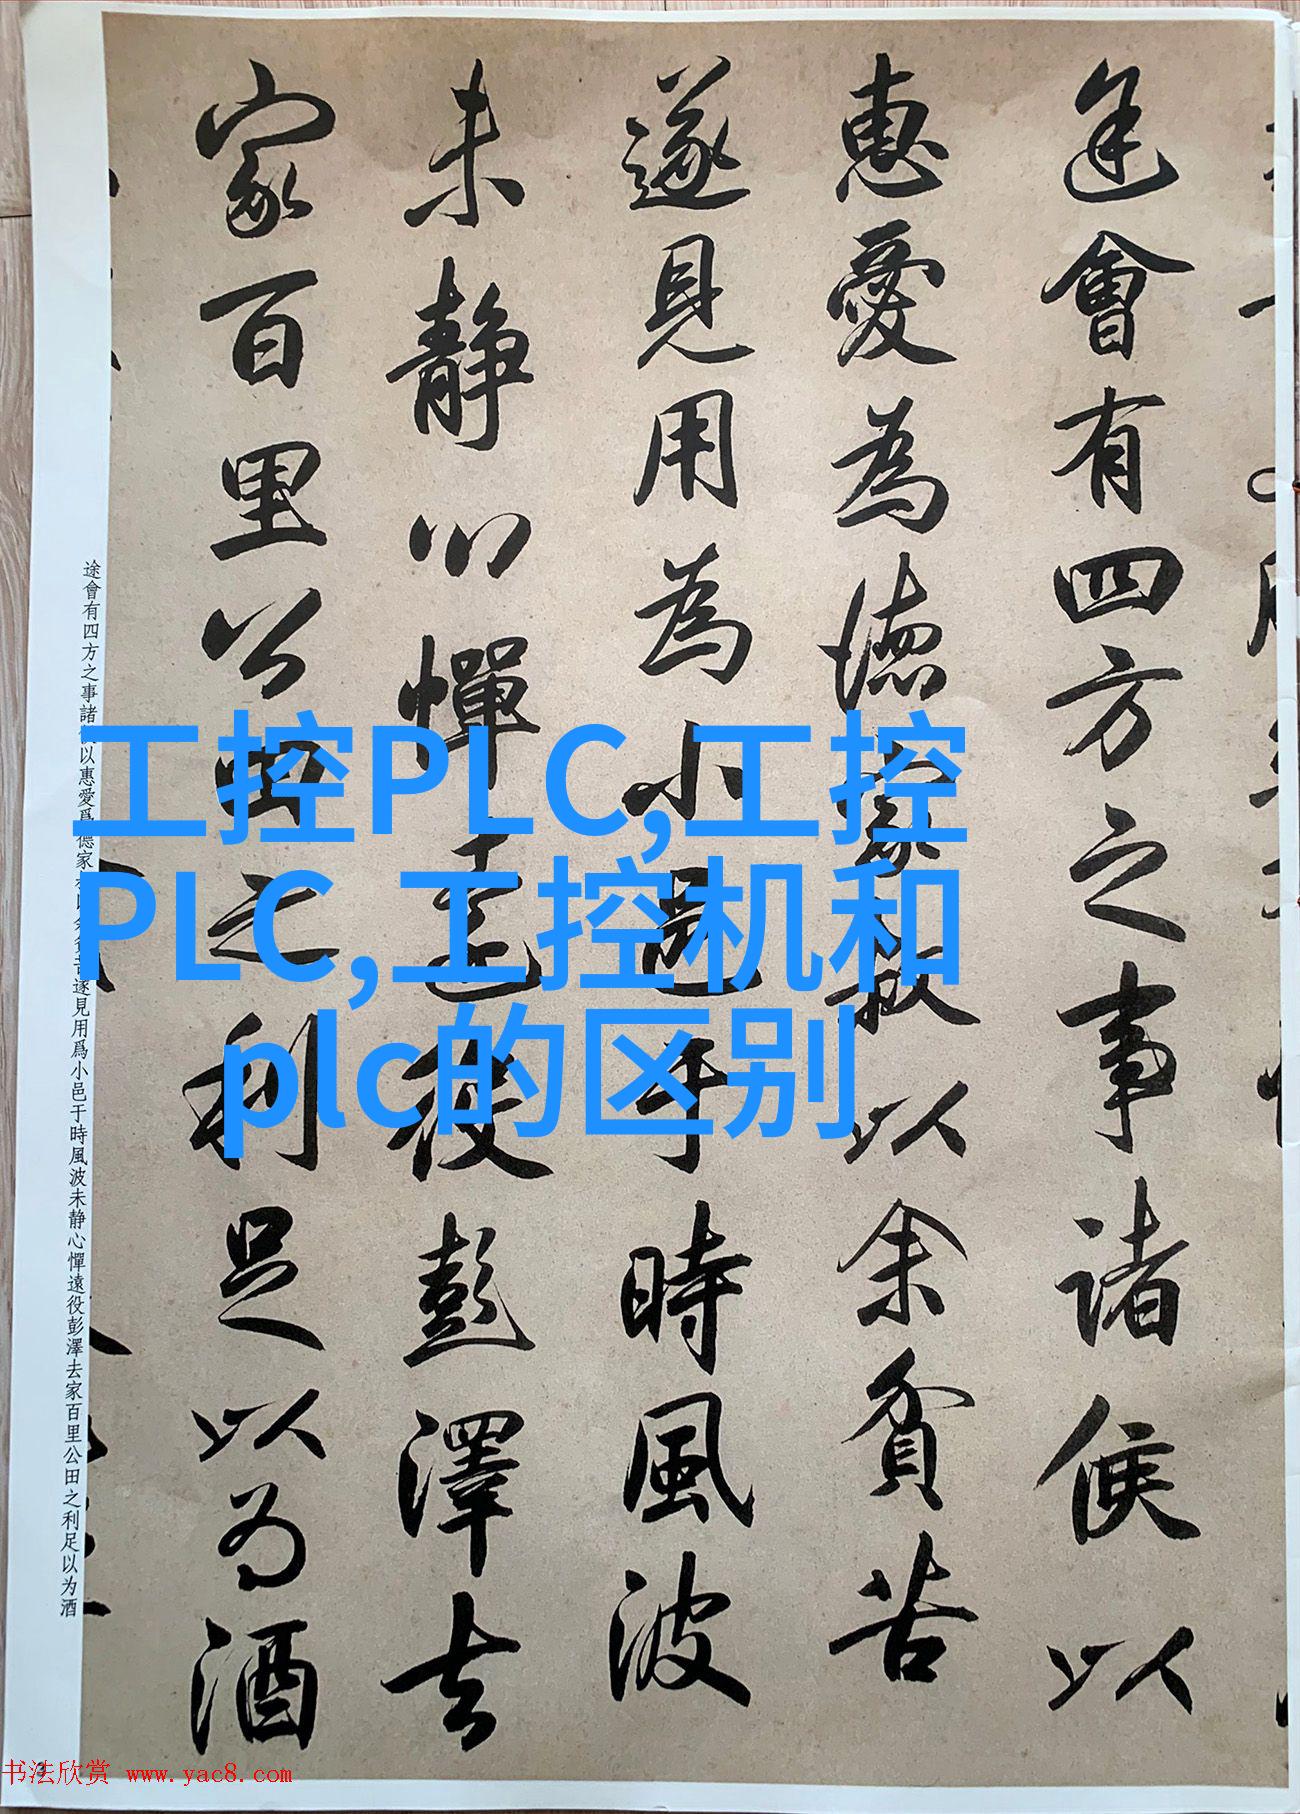 途會有四方之事諸侯以
惠愛為德家叔以余貧苦
遂見用為小邑于時風波
未静心憚遠役彭澤去
家百里公田之利足以為酒
途會有四方之事諸以惠愛爲德家貧苦遂見用爲小邑于時風波未静心憚遠役彭澤去家百里公田之利足以为酒
工控PLC,工控
PLC,工控机和
plc的区别
书法欣赏 www.yac8.com